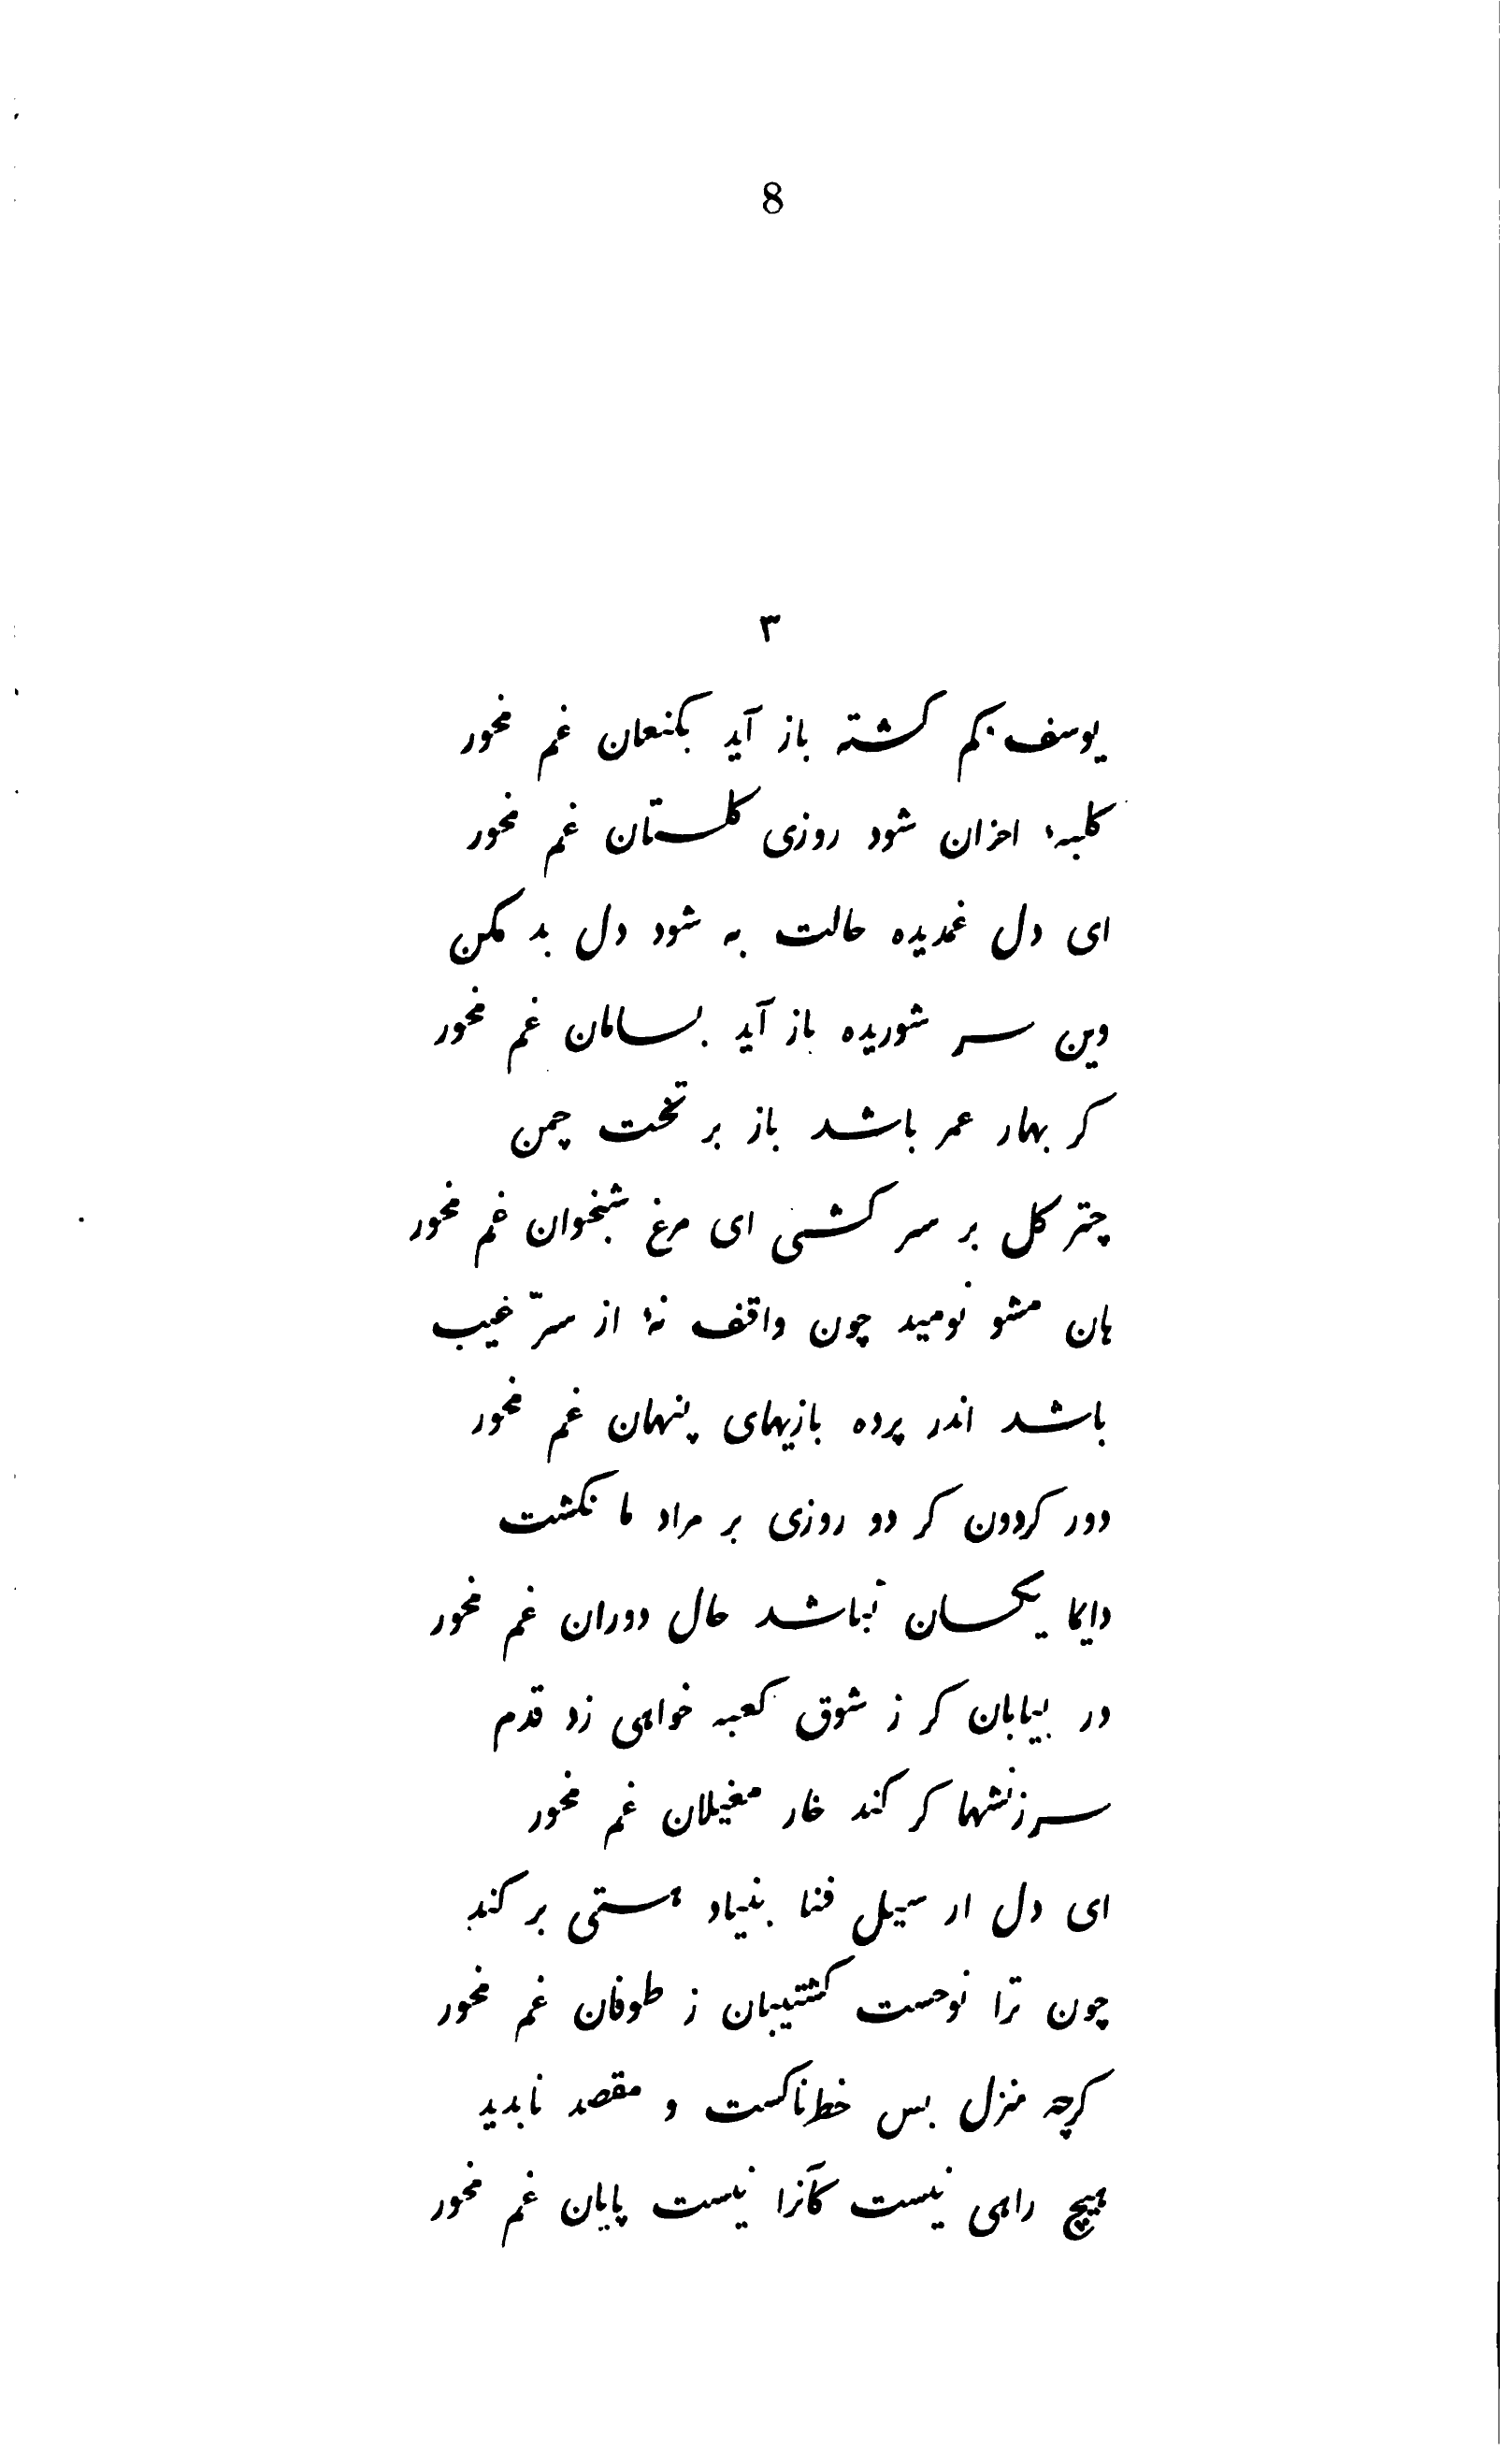 8
۳
یوسف کم کشته باز آید بکنعان غم مخور
کلبهٔ احزان شود روزی کلستان غم مخور
ای دل غمدیده حالت به شود دل بد مکن
وین سر شوریده باز آید بسامان غم مخور
کر بهار عمر باشد باز بر تخت چمن
چتر کل بر سر کشی ای مرغ شبخوان غم مخور
هان مشو نومید چون واقف نهٔ از سرّ غیب
باشد اندر پرده بازیهای پنهان غم مخور
دور کردون کر دو روزی بر مراد ما نکشت
دایما یکسان نباشد حال دوران غم مخور
در بیابان کر ز شوق کعبه خواهی زد قدم
سرزنشها کر کند خار مغیلان غم مخور
ای دل ار سیل فنا بنیاد هستی بر کند
چون ترا نوحست کشتیبان ز طوفان غم مخور
کرچه منزل بس خطرناکست و مقصد نابدید
هیچ راهی نیست کآنرا نیست پایان غم مخور